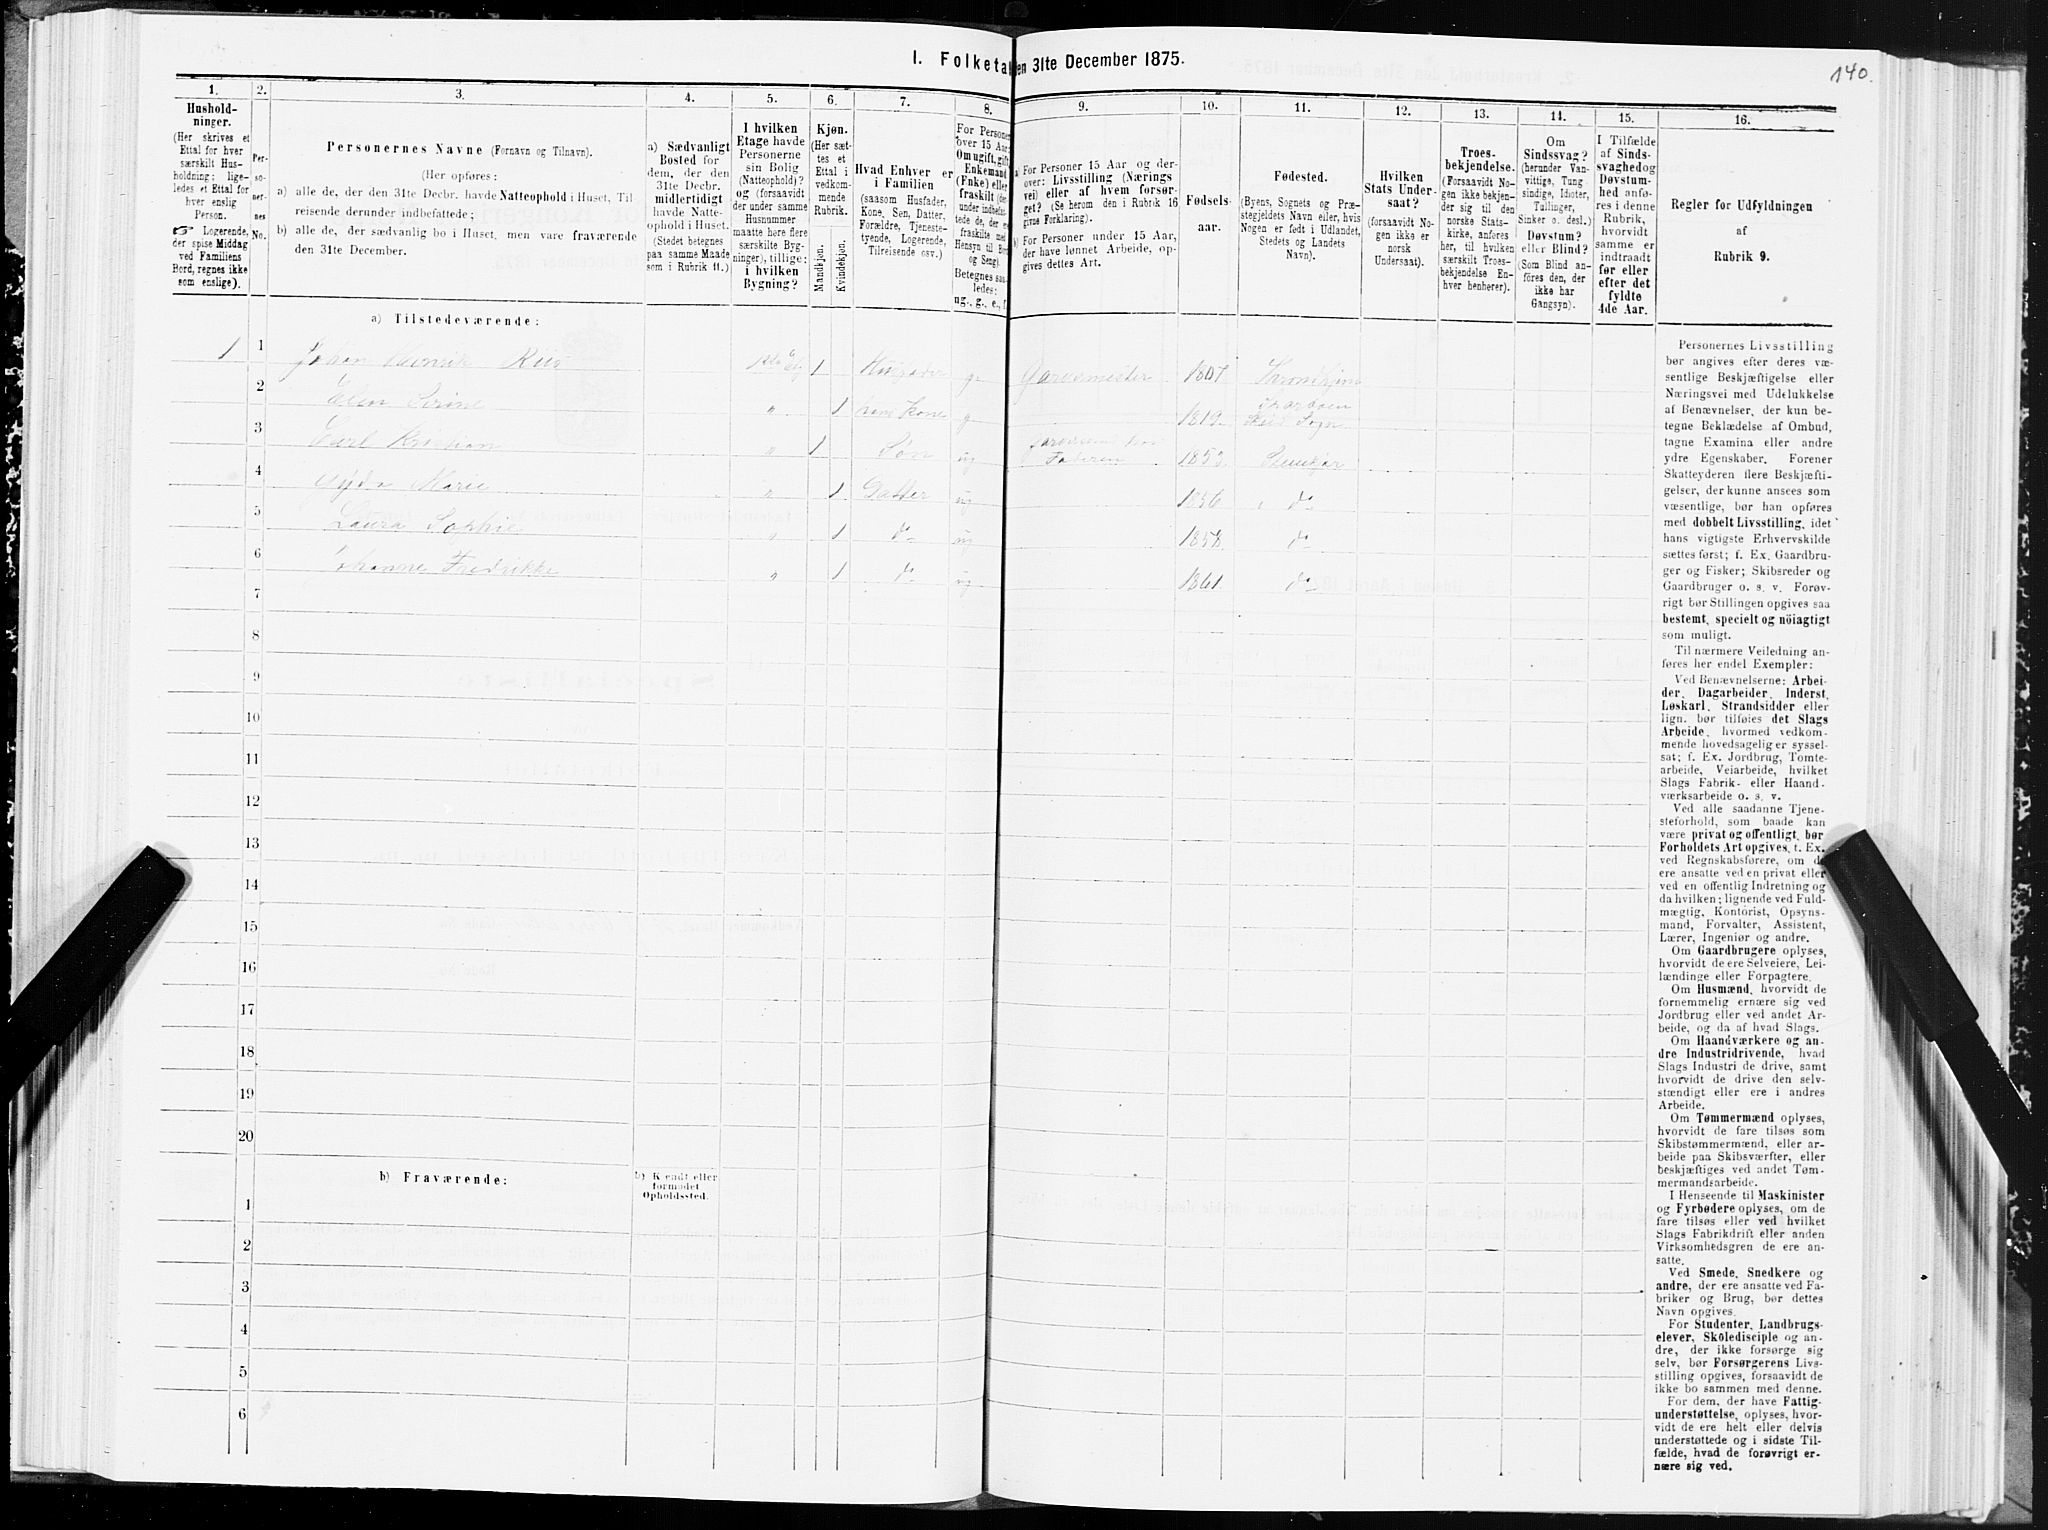 I. Folketæ en 31te December 1875.
140.
1.
Hushold-
ninger.
(Her skrives et
Ettal for hver
særskilt Hus-
holdning; lige-
ledes et Ettal for
hver enslig
Person.
☞ Logerende,
der spise Middag
ved Familiens
Bord, regnes ikke
som enslige).
2.
Per-
so-
ner-
nes
No.
3.
Personernes Navne (Fornavn og Tilnavn).
(Her opføres:
a) alle de, der den 31te Decbr. havde Natteophold i Huset, Til-
reisende derunder indbefattede;
b) alle de, der sædvanlig bo i Huset, men vare fraværende
den 31te December.
4.
a) Sædvanligt
Bosted for
dem, der den
31te Decbr.
midlertidigt
havde Natte-
ophold i Huset.
(Stedet betegnes
paa samme Maade
som i Rubrik 11.)
5.
I hvilken
Etage havde
Personerne
sin Bolig
(Natteophold)?
og (forsaavidt
der under samme
Husnummer
maatte høre flere
særskilte Byg-
ninger), tillige:
i hvilken
Bygning?
6.
Kjøn.
(Her sæt-
tes et
Ettal i
vedkom-
mende
Rubrik.
Mandkjøn.
Kvindekjøn.
7.
Hvad Enhver er
i Familien
(saasom Husfader,
Kone, Søn, Datter,
Forældre, Tjeneste-
tyende, Logerende,
Tilreisende osv.)
8.
For Personer
over 15 Aar:
Om ugift, gift,
Enkemand
(Enke) eller
fraskilt (der-
under indbefat-
tede de, der ere
fraskilte med
Hensyn til Bord
og Seng).
Betegnes saa-
ledes:
ug., g., e., f.
9.
a) For Personer 15 Aar og der-
over: Livsstilling (Nærings
vei) eller af hvem forsør-
get? (Se herom den i Rubrik 16
givne Forklaring).
b) For Personer under 15 Aar,
der have lønnet Arbeide, op-
gives dettes Art.
10.
Fødsels-
aar.
11.
Fødested.
(Byens, Sognets og Præ-
stegjeldets Navn eller, hvis
Nogen er født i Udlandet,
Stedets og Landets
Navn).
12.
Hvilken
Stats Under-
saat?
(forsaavidt No-
gen ikke er
norsk
Undersaat).
13.
Troes-
bekjendelse.
(Forsaavidt No-
gen ikke bekjen-
der sig til den
norske Stats-
kirke, anføres
her, til hvilken
særskilt Troes-
bekjendelse En-
hver henhører).
14.
Om
Sindssvag?
(herunder Van-
vittige, Tung-
sindige, Idioter,
Tullinger,
Sinker o. desl.)
Døvstum?
eller Blind?
(Som Blind an-
føres den, der
ikke har
Gangsyn).
15.
I Tilfælde
af Sinds-
svaghed og
Døvstum-
hed anfø-
res i denne
Rubrik,
hvorvidt
samme er
indtraadt
før eller
efter det
fyldte
4de Aar.
16.
Regler for Udfyldningen
af
Rubrik 9.
a) Tilstedeværende:
1 1 Johan Henrik Riis 1 Husfader g. Garvemester 1807 Trondhjem
2 Elen Serine " 1 hans Kone g 1819
3 Carl Kristian " 1 Søn ug Faderen 185 Stenkjær
4 Gyda Marie " 1 Datter ug 1856 do
5 Laura Sophie " 1 do ug 1858. do
6 Johanne Fredrikke " 1 do ug 1861. do
7
8
9
10
11
12
13
14
15
16
17
18
19
20
b) Fraværende:
b) Kjendt eller
formodet
Opholdssted.
1
2
3
4
5
6
Personernes Livsstilling
bør angives efter deres væ-
sentlige Beskjæftigelse eller
Næringsvei med Udelukkelse
af Benævnelser, der kun be-
tegne Beklædelse af Ombud,
tagne Examina eller andre
ydre Egenskaber. Forener
Skatteyderen flere Beskjæfti-
gelser, der kunne ansees som
væsentlige, bør han opføres
med dobbelt Livsstilling, idet
hans vigtigste Erhvervskilde
sættes først; f. Ex. Gaardbru-
ger og Fisker; Skibsreder og
Gaardbruger o. s. v. Forøv-
rigt bør Stillingen opgives saa
bestemt, specielt og nöiagtigt
som muligt.
Til nærmere Veiledning an-
føres her endel Exempler:
Ved Benævnelserne: Arbei-
der, Dagarbeider, Inderst,
Løskarl, Strandsidder eller
lign. bør tilføies det Slags
Arbeide, hvormed vedkom-
mende hovedsagelig er syssel-
sat; f. Ex. Jordbrug, Tomte-
arbeide, Veiarbeide, hvilket
Slags Fabrik- eller Haand-
værksarbeide o. s. v.
Ved alle saadanne Tjene-
steforhold, som baade kan
være privat og offentligt, bør
Forholdets Art opgives, t. Ex.
ved Regnskabsførere, om d
ere ansatte ved en privat eller
ved en offentlig Indretning og
da hvilken; lignende ved Fuld-
mægtig, Kontorist, Opsyns-
mand, Forvalter, Assistent,
Lærer, Ingeniør og andre.
Om Gaardbrugere oplyses,
hvorvidt de ere Selveiere, Lei-
lændinge eller Forpagtere.
Om Husmænd, hvorvidt de
fornemmelig ernære sig ved
Jordbrug eller ved andet Ar-
beide, og da af hvad Slags.
Om Haandværkere og an-
dre Industridrivende, hvad
Slags Industri de drive, samt
hvorvidt de drive den selv-
stændigt eller ere i andres
Arbeide.
Om Tømmermænd oplyses,
hvorvidt de fare tilsøs som
Skibstømmermænd, eller ar-
beide paa Skibsværfter, eller
beskjæftiges ved andet Tøm-
mermandsarbeide.
I Henseende til Maskinister
og Fyrbødere oplyses, om de
fare tilsøs eller ved hvilket
Slags Fabrikdrift eller anden
Virksomhedsgren de ere an-
satte.
Ved Smede, Snedkere og
andre, der ere ansatte ved Fa-
briker og Brug, bør dettes
Navn opgives.
For Studenter, Landbrugs-
elever, Skoledisciple og an-
dre, der ikke forsørge sig
selv, bør Forsørgerens Livs-
stilling opgives, forsaavidt de
ikke bo sammen med denne.
For dem, der have Fattig-
understøttelse, oplyses, hvor-
vidt de ere helt eller delvis
understøttede og i sidste Til-
fælde, hvad de forøvrigt er-
nære sig ved.